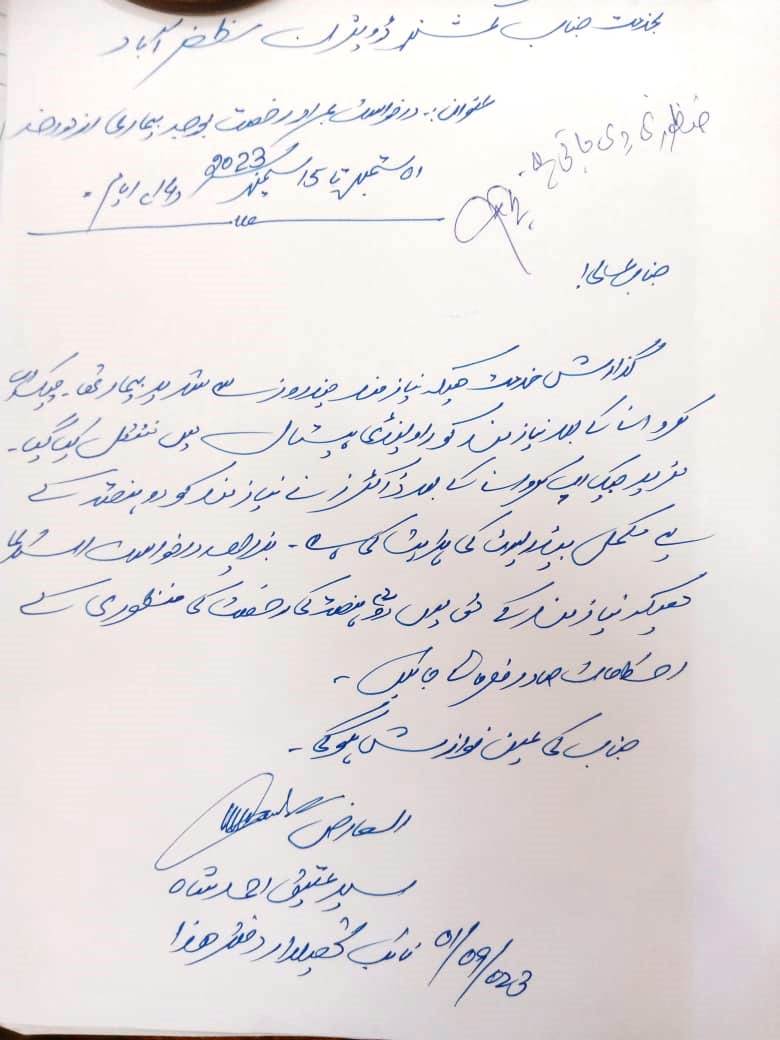 بخدمت جناب کمشنر ڈویژن مظفرآباد
عنوان:۔ درخواست بمراد رخصت بوجہ بیماری از مورخہ
01 ستمبر تا 15 ستمبر 2023
منظوری دی جاتی ہے۔
جناب عالی!
گذارش خدمت ہیکہ نیازمند چند روز سے شدید بیمار تھا۔ چیک اپ
کروانے کے بعد نیازمند کو راولپنڈی ہسپتال میں منتقل کیا گیا۔
مزید چیک اپ کروانے کے بعد ڈاکٹرز نے نیازمند کو دو ہفتہ کے
لیے مکمل بیڈ ریسٹ کی ہدایت کی ہے۔ بذریعہ درخواست استدعا
ہیکہ نیازمند کے حق میں دو ہفتہ کی رخصت کی منظوری کے
احکامات صادر فرمائے جائیں۔
جناب کی عین نوازش ہوگی۔
العارض
سید عتیق احمد شاہ
نائب تحصیلدار دفتر ھذا
01/09/023